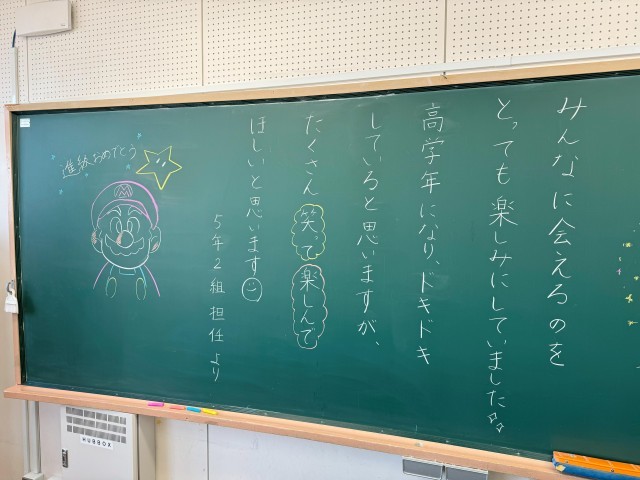 みんなに会えるのを
とっても楽しみにしていました
高学年になり、ドキドキ
していると思いますが、
たくさん笑って楽しんで
ほしいと思います
5年2組担任より
進級おめでとう
M
HUBBOX